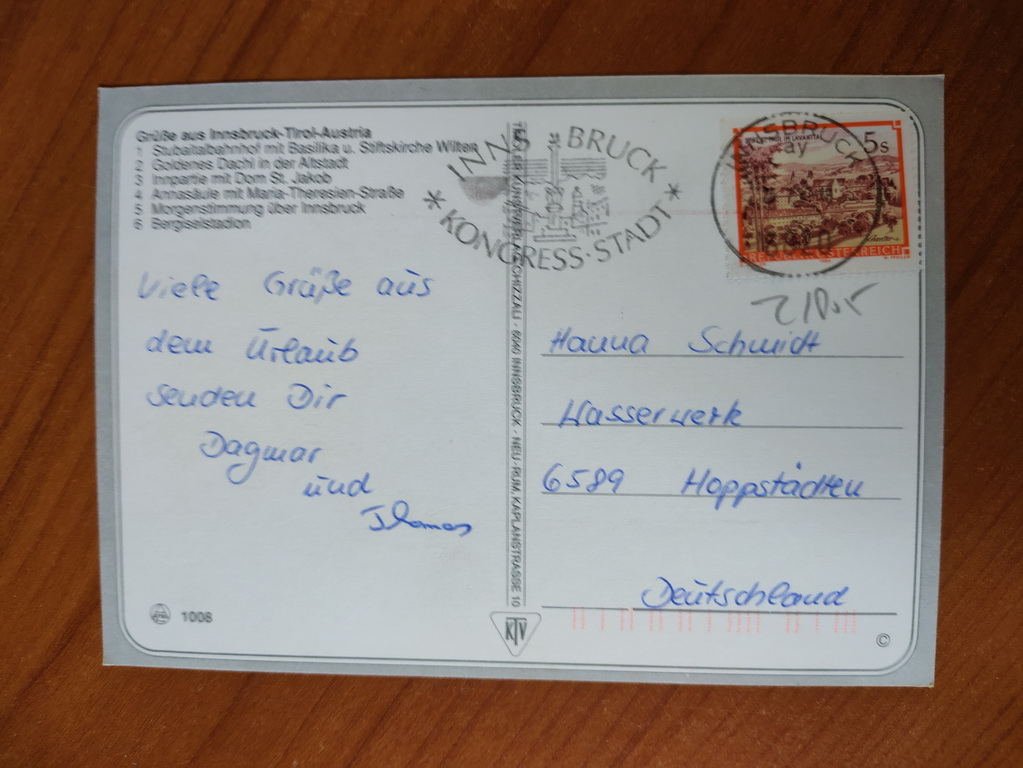 Grüße aus Innsbruck-Tirol-Austria
1 Stubaitalbahnhof mit Basilika u. Stiftskirche Wilten
2 Goldenes Dachl in der Altstadt
3 Innpartie mit Dom St. Jakob
4 Annasäule mit Maria-Theresien-Straße
5 Morgenstimmung über Innsbruck
6 Bergiselstadion
INNSBRUCK
* KONGRESS-STADT *
INNSBRUCK
5s
REPUBLIK ÖSTERREICH
Viele Grüße aus
dem Urlaub
senden Dir
Dagmar
und
Thomas
6040 INNSBRUCK - NEU-RUM, KAPLANSTRASSE 10
Hanna Schmidt
Wasserwerk
6589 Hoppstädten
Deutschland
1008
KTV
©